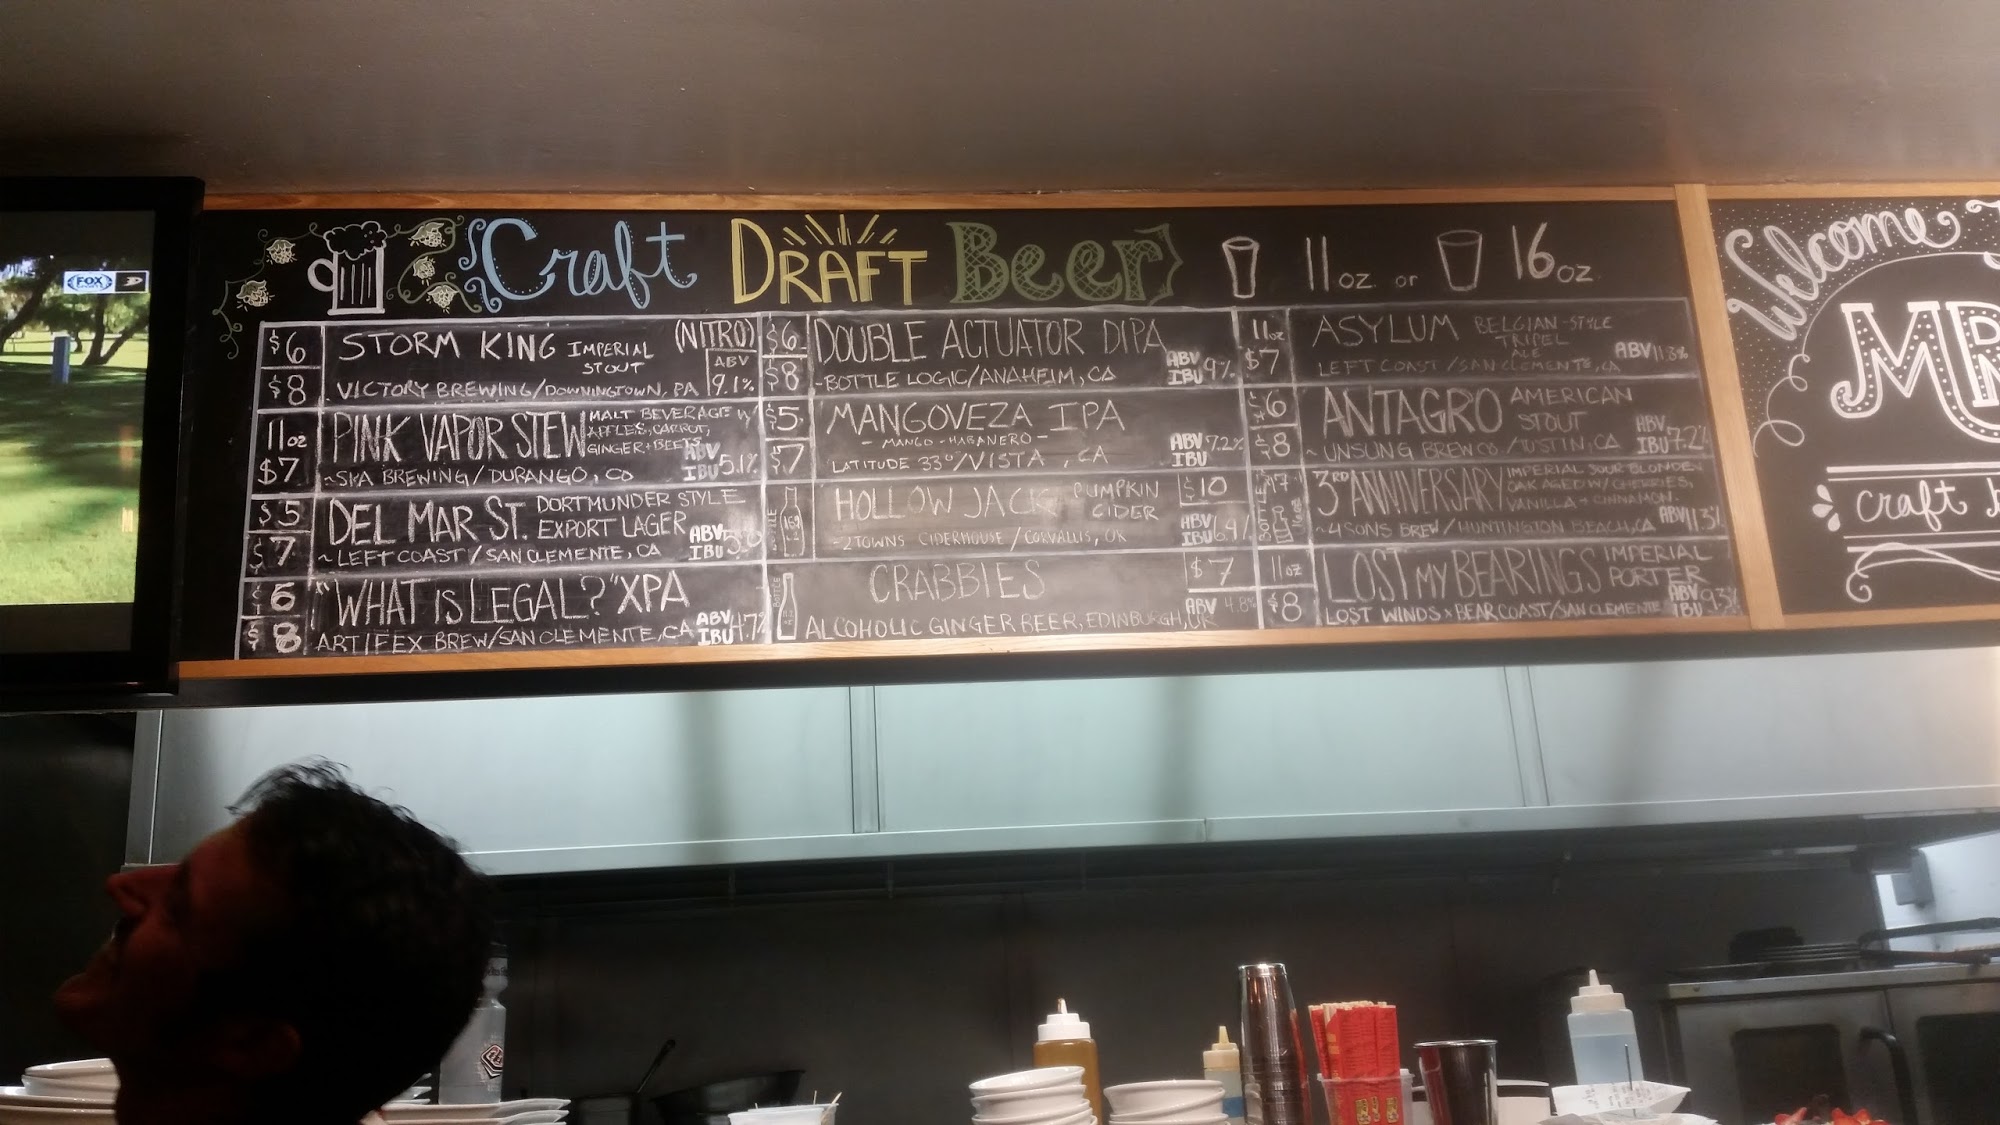 FOX
Craft DRAFT Beer 11 oz or 16 oz
$6 STORM KING IMPERIAL STOUT (NITRO)
$8 VICTORY BREWING/DOWNINGTOWN, PA ABV 9.1%
11oz PINK VAPOR STEW MALT BEVERAGE W/ APPLES, CARROT, GINGER + BEETS
$7 ~SKA BREWING/DURANGO, CO ABV IBU 5.1%
$5 DEL MAR ST. DORTMUNDER STYLE EXPORT LAGER
$7 ~LEFT COAST/SAN CLEMENTE, CA ABV IBU
$6 "WHAT IS LEGAL?" XPA
$8 ARTIFEX BREW/SAN CLEMENTE, CA ABV IBU 4.7%
$6 DOUBLE ACTUATOR DIPA
$8 -BOTTLE LOGIC/ANAHEIM, CA ABV IBU 9%
$5 MANGOVEZA IPA
- MANGO-HABANERO -
$7 LATITUDE 33°/VISTA, CA ABV IBU 7.2%
BOTTLE HOLLOW JACK PUMPKIN CIDER $10
-2TOWNS CIDERHOUSE/CORVALLIS, OR ABV IBU 6.4%
BOTTLE CRABBIES $7
ALCOHOLIC GINGER BEER, EDINBURGH, UK ABV 4.8%
11oz ASYLUM BELGIAN-STYLE TRIPEL ALE
$7 LEFT COAST/SAN CLEMENTE, CA ABV 11.3%
$6 ANTAGRO AMERICAN STOUT
$8 ~UNSUNG BREW CO./TUSTIN, CA ABV IBU 7.2%
3RD ANNIVERSARY IMPERIAL SOUR BLONDE OAK AGED W/CHERRIES, VANILLA + CINNAMON.
~4SONS BREW/HUNTINGTON BEACH, CA ABV 11.3%
11oz LOST MY BEARINGS IMPERIAL PORTER
$8 LOST WINDS x BEAR COAST/SAN CLEMENTE ABV IBU 9.3%
Welcome
craft